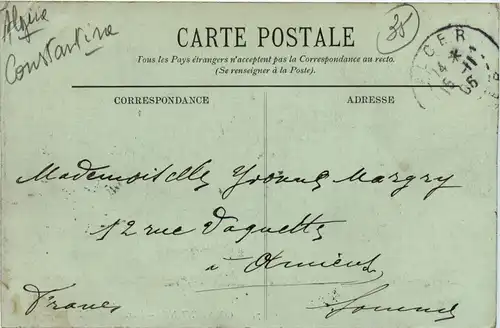 Algérie
Constantine
35
CARTE POSTALE
Tous les Pays étrangers n'acceptent pas la Correspondance au recto.
(Se renseigner à la Poste).
ALGER
15-11
05
CORRESPONDANCE
ADRESSE
Mademoiselle Yvonne Margry
12 rue Vaquette
à Amiens
France Somme